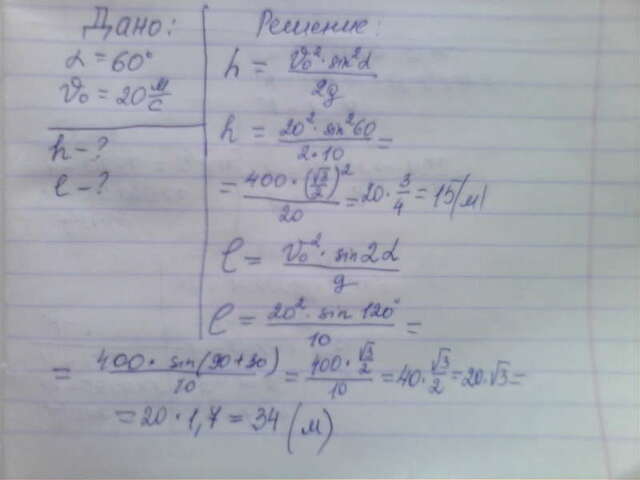 Дано:
α = 60°
v₀ = 20 м/с
h - ?
l - ?
Решение:
h = v₀² · sin²α / 2g
h = 20² · sin²60 / 2·10 =
= 400 · (√3/2)² / 20 = 20 · 3/4 = 15(м)
l = v₀² · sin2α / g
l = 20² · sin 120° / 10 =
= 400 · sin(90+30) / 10 = 400 · √3/2 / 10 = 40 · √3/2 = 20·√3 =
= 20 · 1,7 = 34 (м)